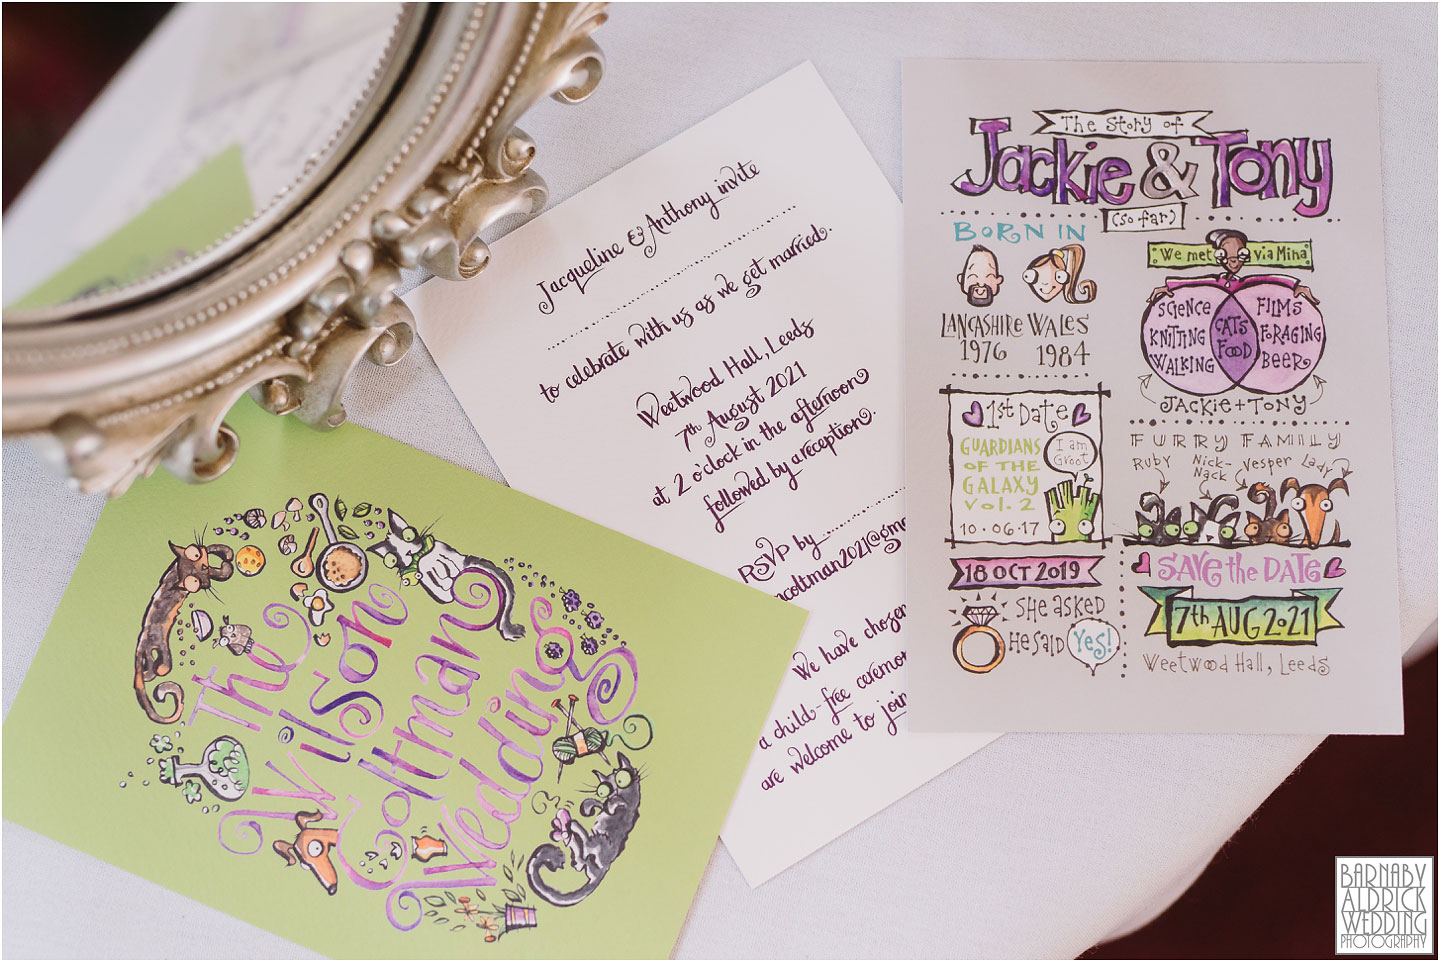 The
Wilson
Coltman
Wedding
Jacqueline & Anthony invite
to celebrate with us as we get married.
Weetwood Hall, Leeds
7th August 2021
at 2 o'clock in the afternoon
followed by a reception.
RSVP by
ncoltman2021@gma
We have chosen
a child-free ceremo
are welcome to join
The Story of
Jackie & Tony
(so far)
BORN IN
LANCASHIRE WALES
1976 1984
We met via Mina
SCIENCE
KNITTING
WALKING
CATS
FOOD
FILMS
FORAGING
BEER
JACKIE + TONY
1st DATE
GUARDIANS
OF THE
GALAXY
VOL. 2
10·06·17
I am
Groot
FURRY FAMILY
Ruby
Nick-
Nack
Vesper
Lady
18 OCT 2019
SHE ASKED
HE SAID
YES!
SAVE the DATE
7th AUG 2021
Weetwood Hall, Leeds
BARNABY
ALDRICK
WEDDING
PHOTOGRAPHY